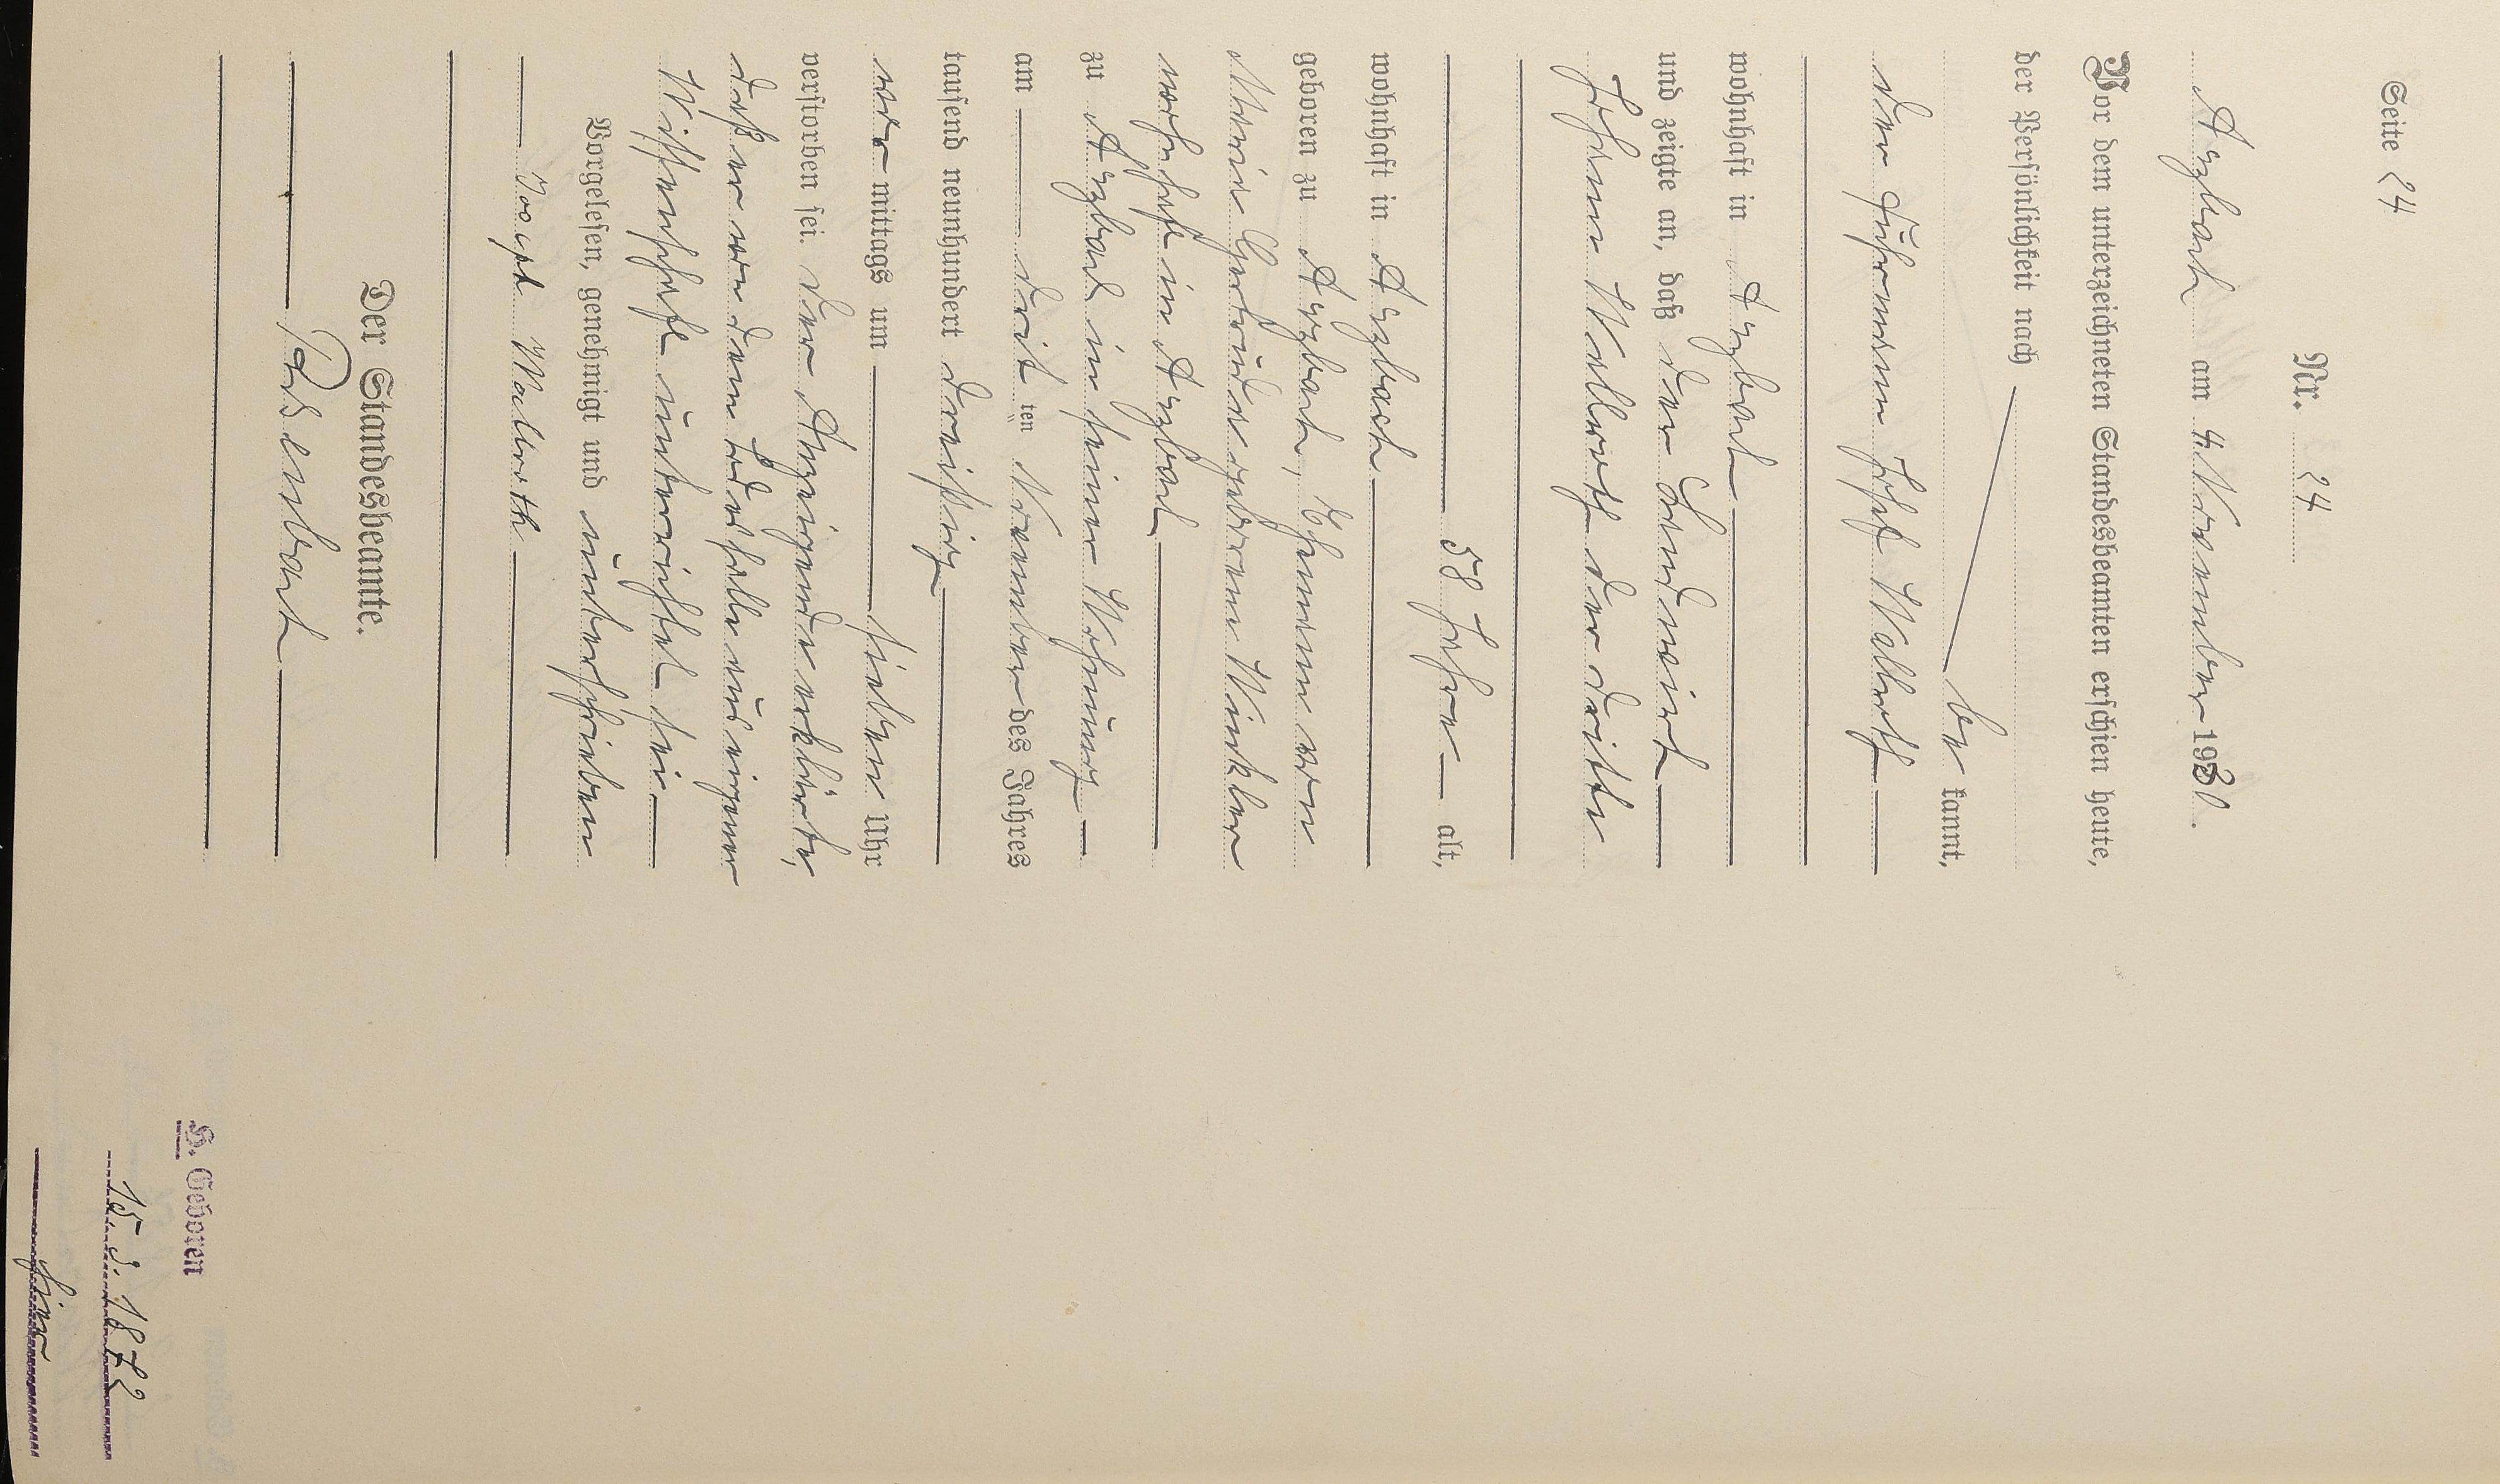 Seite 24
Nr. 24
Arzbach am 4. November 1930.
Vor dem unterzeichneten Standesbeamten erschien heute,
der Persönlichkeit nach
be kannt,
der Fuhrmann Josef Wallroth
wohnhaft in Arzbach
und zeigte an, daß der Landwirt
Johann Wallroth der dritte
58 Jahre alt,
wohnhaft in Arzbach
geboren zu Arzbach, Ehemann von
Maria Gertrude geborene Winkler
wohnhaft in Arzbach
zu Arzbach in seiner Wohnung
am dritten November des Jahres
tausend neunhundert dreißig
vor mittags um sieben Uhr
verstorben sei. Der Anzeigende erklärte,
daß er von dem Todesfalle aus eigener
Wissenschaft unterrichtet sei
Vorgelesen, genehmigt und unterschrieben
Josef Wallroth
Der Standesbeamte.
H. Geboren
15. 3. 1872
hier